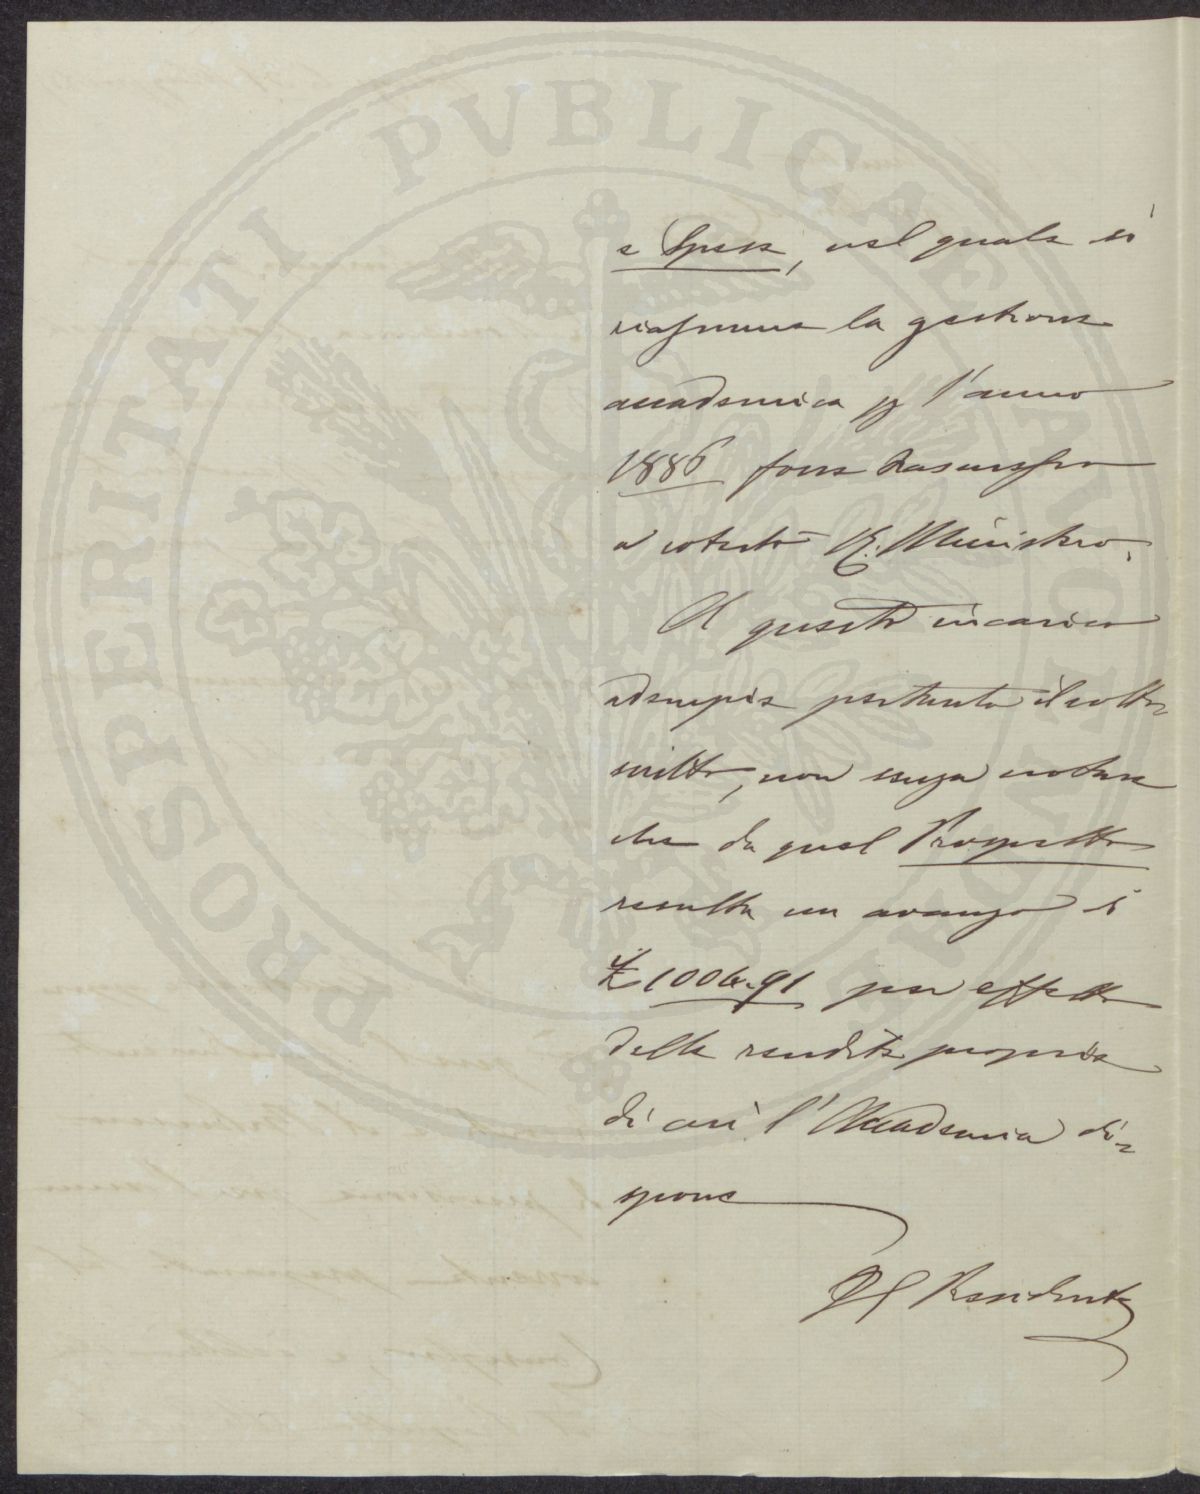 PROSPERITATI PVBLICAE AVGENDAE
e Spese, nel quale si
riassume la gestione
accademica p l'anno
1886 fosse trasmesso
a cotesto R. Ministro.
A questo incarico
adempie pertanto il sotto=
scritto, non senza notare
che da quel Prospetto
resulta un avanzo di
£ 1006.91 per effetto
delle rendite proprie
di cui l'Accademia di=
spone
Il Presidente